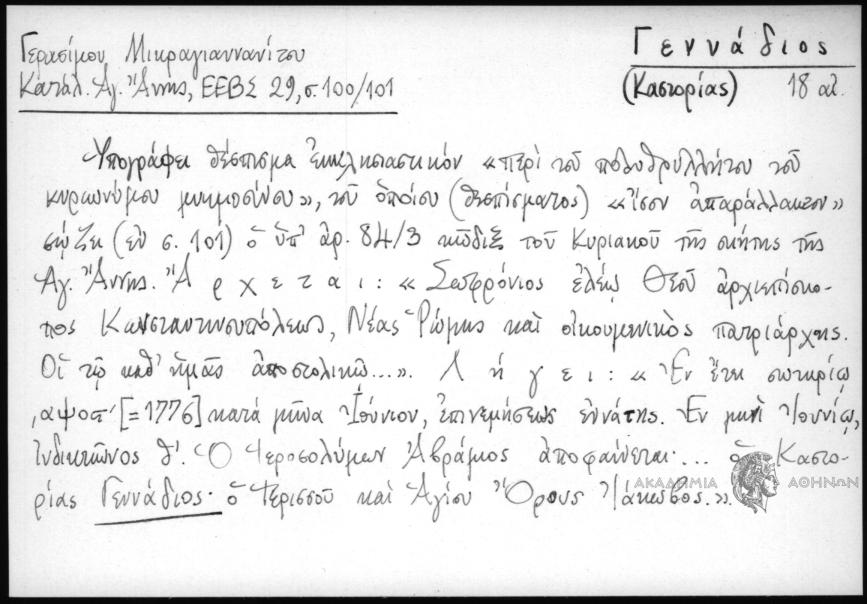 Γερασίμου Μικραγιαννανίτου
Κατάλ. Ἁγ. Ἄννης, ΕΕΒΣ 29, σ. 100/101
Γεννάδιος
(Καστορίας) 18 αἰ.
Ὑπογράφει θέσπισμα ἐκκλησιαστικόν «περὶ τοῦ πολυθρυλλήτου τοῦ
κυριωνύμου μνημοσύνου», τοῦ ὁποίου (θεσπίσματος) «ἴσον ἀπαράλλακτον»
σῴζει (ἐν σ. 101) ὁ ὑπ' ἀρ. 84/3 κῶδιξ τοῦ Κυριακοῦ τῆς σκήτης τῆς
Ἁγ. Ἄννης. Ἄρχεται: «Σωφρόνιος ἐλέῳ Θεοῦ ἀρχιεπίσκο-
πος Κωνσταντινουπόλεως, Νέας Ῥώμης καὶ οἰκουμενικὸς πατριάρχης.
Οἱ τῷ καθ' ἡμᾶς ἀποστολικῷ...». Λήγει: «Ἐν ἔτει σωτηρίῳ
,αψοϛ' [=1776] κατά μῆνα Ἰούνιον, ἐπινεμήσεως ἐννάτης. Ἐν μηνὶ Ἰουνίῳ,
ἰνδικτιῶνος θ'. Ὁ Ἱεροσολύμων Ἀβράμιος ἀποφαίνεται·... ὁ Καστο-
ρίας Γεννάδιος· ὁ Ἱερισσοῦ καὶ Ἁγίου Ὄρους Ἰάκωβος.».
ΑΚΑΔΗΜΙΑ ΑΘΗΝΩΝ